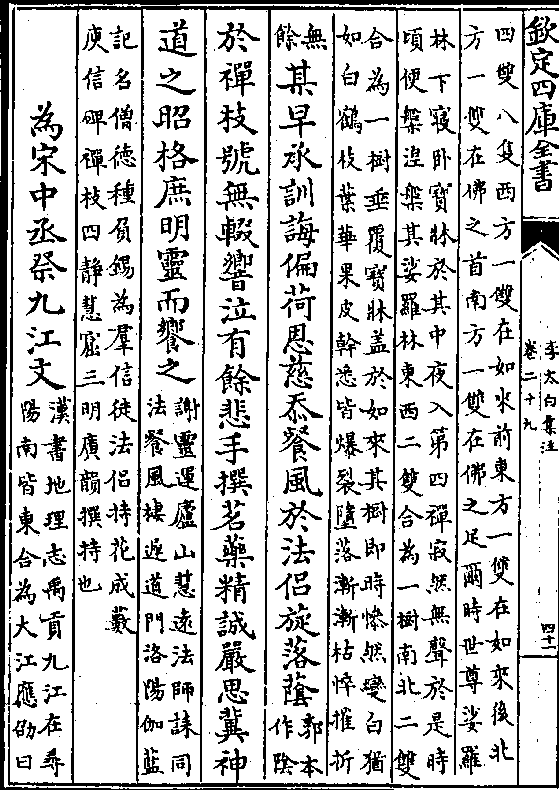 欽定四庫全書
李太白集注
卷二十九
四十一
四雙八隻西方一雙在如來前東方一雙在如來後北
方一雙在佛之首南方一雙在佛之足爾時世尊娑羅
林下寢卧寶牀於其中夜入第四禪寂然無聲於是時
頃便槃涅槃其娑羅林東西二雙合為一樹南北二雙
合為一樹垂覆寶牀蓋於如來其樹即時慘然變白猶
如白鶴枝葉華果皮幹悉皆爆裂墮落漸漸枯悴摧折
無
餘
某早承訓誨偏荷恩慈忝餐風於法侶旋落蔭
郭本
作陰
於禪枝號無輟響泣有餘悲手撰茗藥精誠嚴思冀神
道之昭格庶明靈而饗之
謝靈運廬山慧遠法師誄同
法餐風棲遲道門洛陽伽藍
記名僧德種負錫為羣信徒法侶持花成藪
庾信碑禪枝四静慧窟三明廣韻撰持也
為宋中丞祭九江文
漢書地理志禹貢九江在尋
陽南皆東合為大江應劭曰